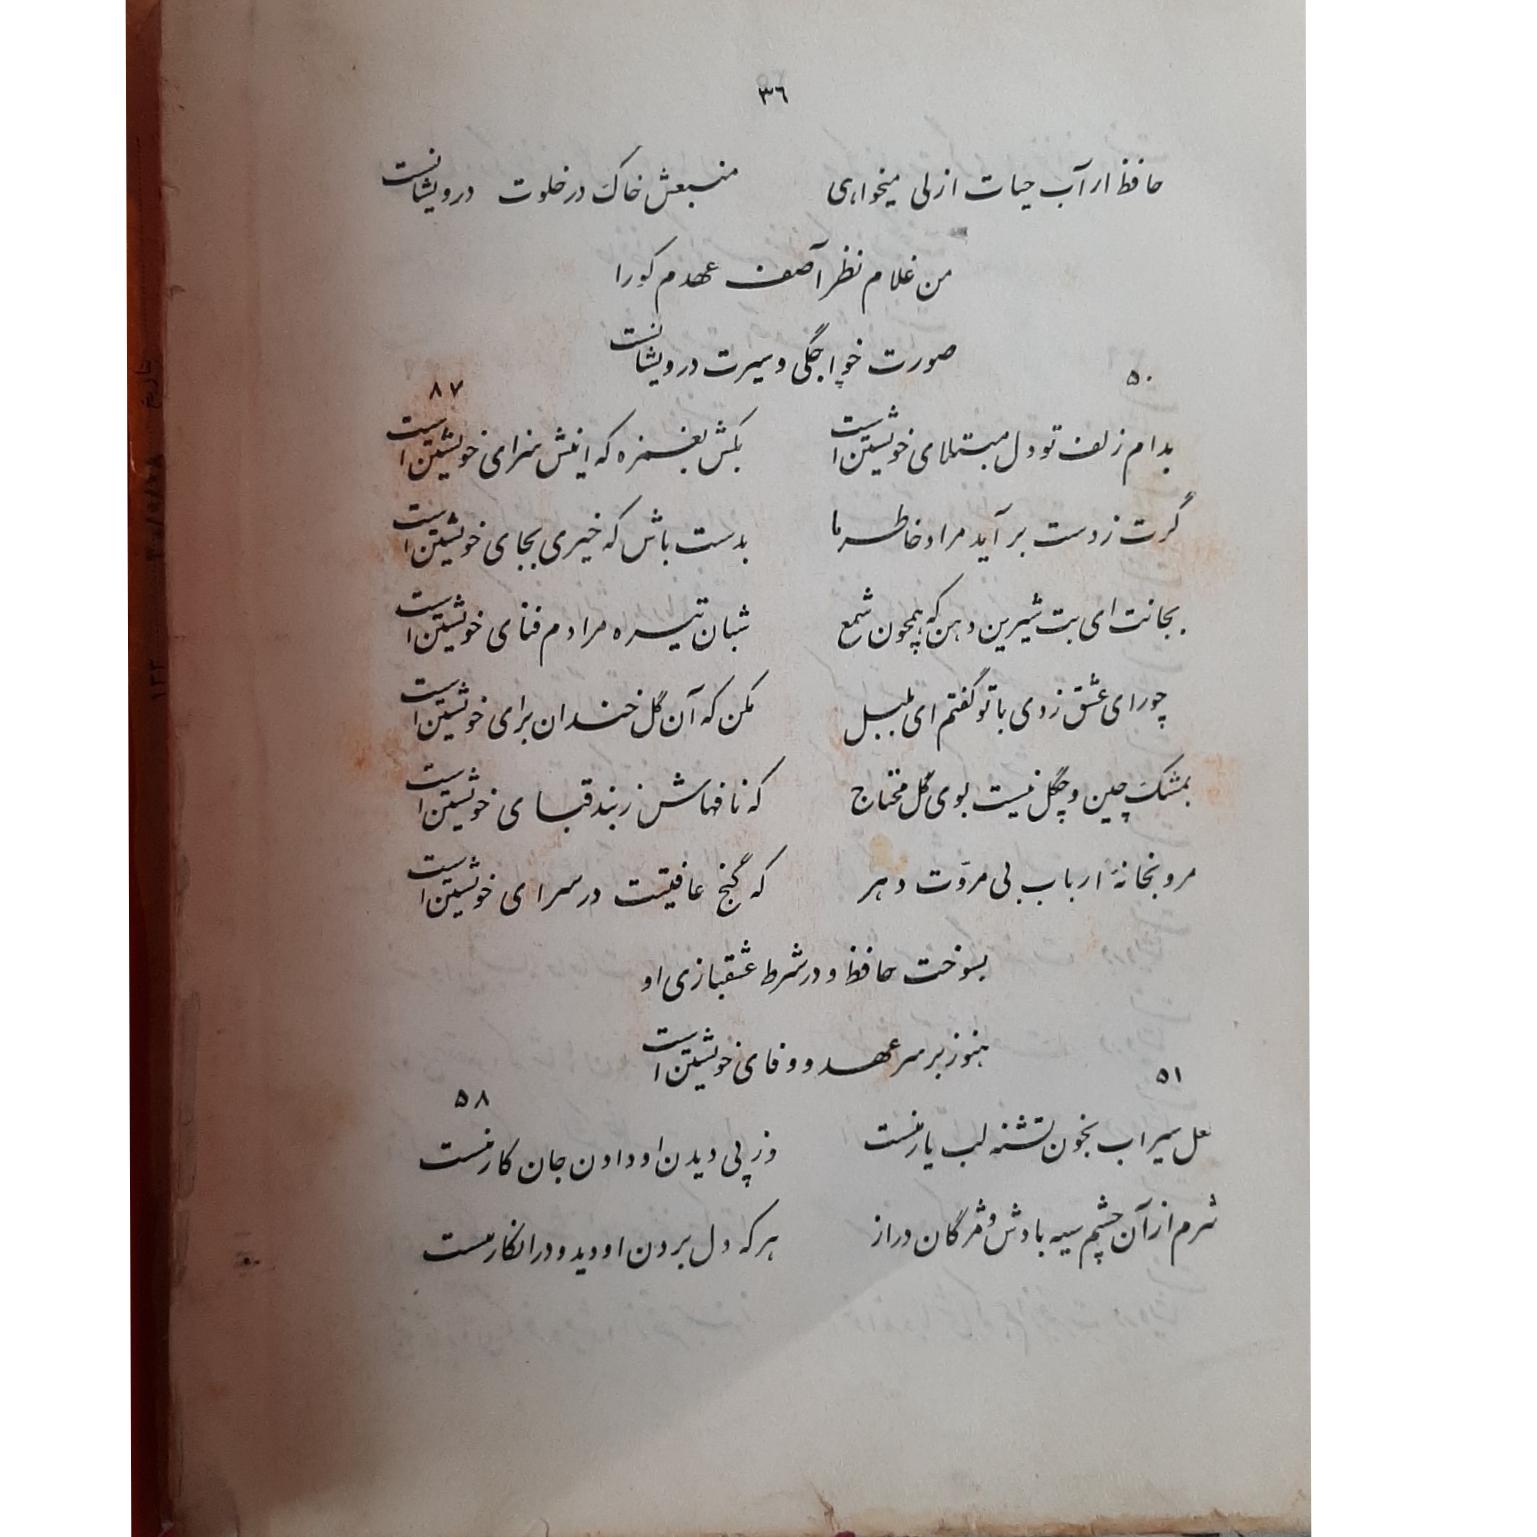 ۳۶
حافظ ار آب حیات ازلی میخواهی منبعش خاک در خلوت درویشانست
من غلام نظر آصف عهدم کورا
صورت خواجگی و سیرت درویشانست
۵۰ ۸۷
بدام زلف تو دل مبتلای خویشتن است بکش بغمزه که اینش سزای خویشتن است
گرت ز دست برآید مراد خاطر ما بدست باش که خیری بجای خویشتن است
بجانت ای بت شیرین دهن که همچون شمع شبان تیره مرادم فنای خویشتن است
چو رای عشق زدی با تو گفتم ای بلبل مکن که آن گل خندان برای خویشتن است
بمشک چین و چگل نیست بوی گل محتاج که نافهاش ز بند قبای خویشتن است
مرو بخانهٔ ارباب بی مروّت دهر که گنج عافیتت در سرای خویشتن است
بسوخت حافظ و در شرط عشقبازی او
هنوز بر سر عهد و وفای خویشتن است
۵۱ ۵۸
لعل سیراب بخون تشنه لب یار منست وز پی دیدن او دادن جان کار منست
شرم از آن چشم سیه بادش و مژگان دراز هر که دل بردن او دید و در انکار منست